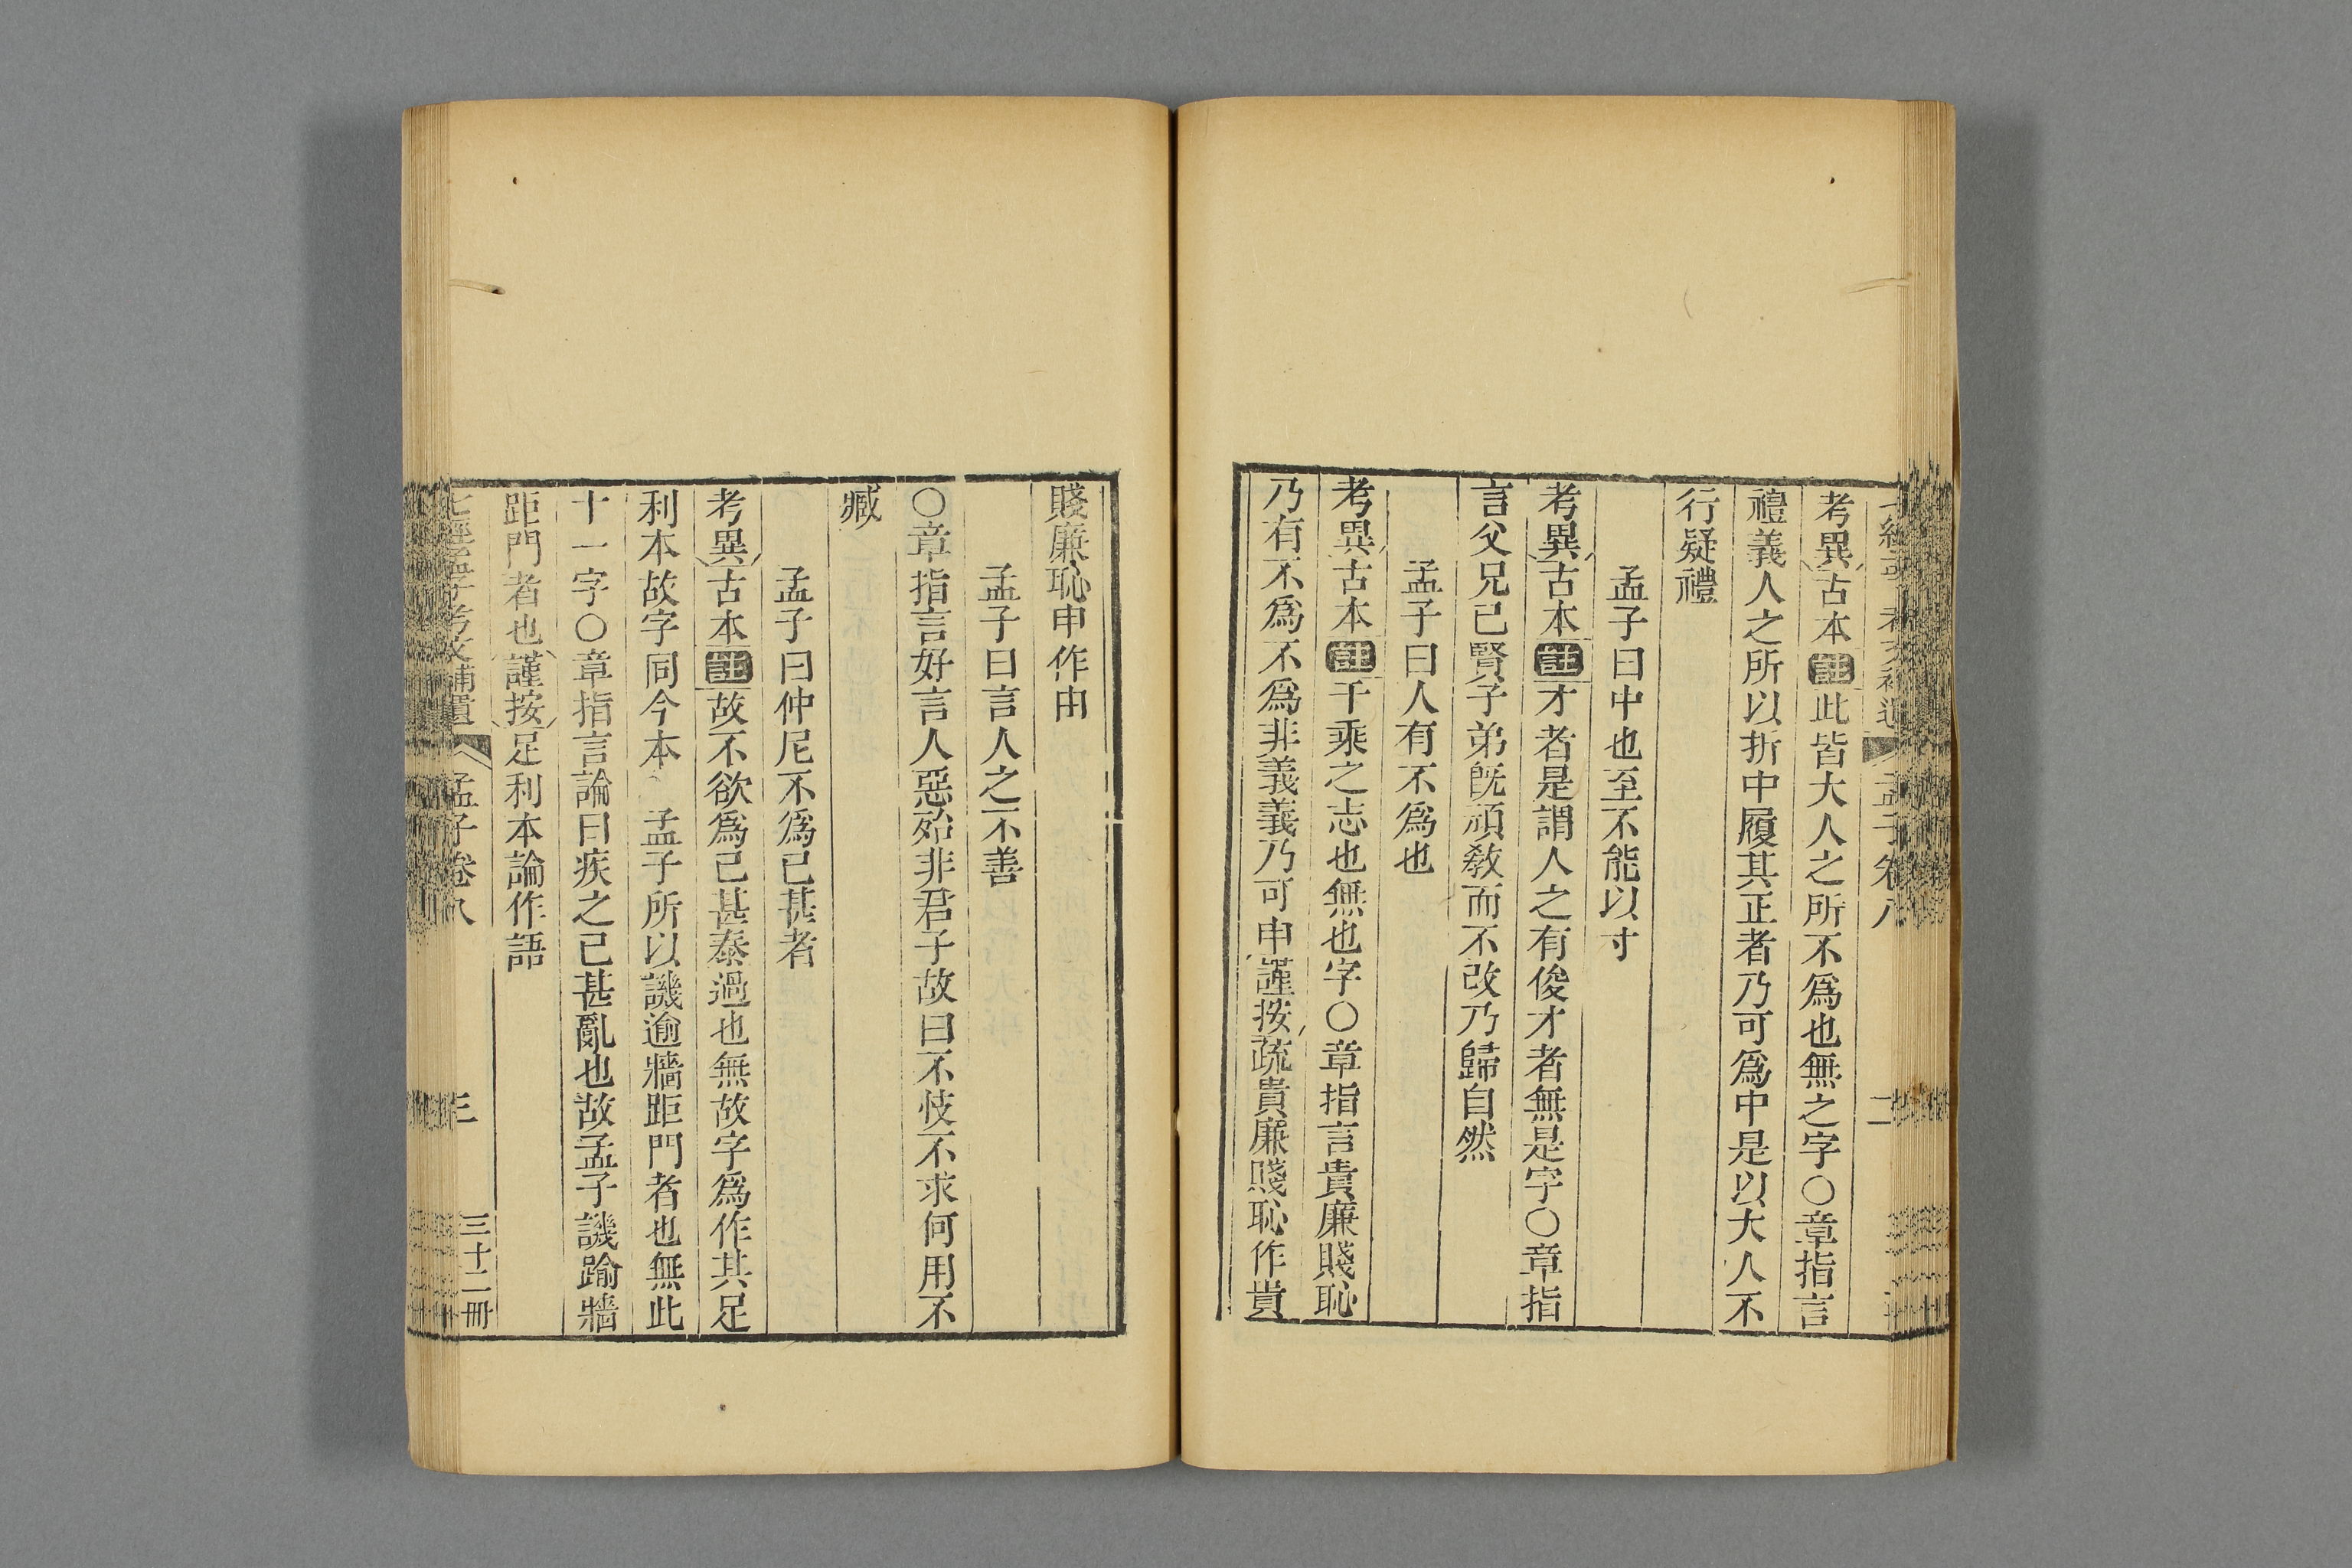 孟子卷八
二
考異古本註此皆大人之所不爲也無之字○章指言
禮義人之所以折中履其正者乃可爲中是以大人不
行疑禮
孟子曰中也至不能以寸
考異古本註才者是謂人之有俊才者無是字○章指
言父兄已賢子弟旣頑教而不改乃歸自然
孟子曰人有不爲也
考異古本註千乘之志也無也字○章指言貴廉賤恥
乃有不爲不爲非義義乃可申謹按疏貴廉賤恥作貴
賤廉恥申作由
孟子曰言人之不善
○章指言好言人惡殆非君子故曰不忮不求何用不
臧
孟子曰仲尼不爲已甚者
考異古本註故不欲爲已甚泰過也無故字爲作其足
利本故字同今本 孟子所以譏逾牆距門者也無此
十一字○章指言論曰疾之已甚亂也故孟子譏踰牆
距門者也謹按足利本論作語
七經孟子考文補遺 孟子卷八 三 三十二冊